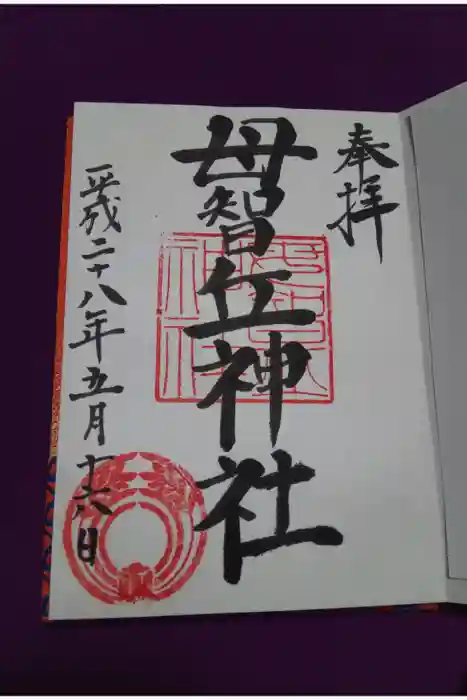 奉拝
母智丘神社
平成二十八年五月十六日